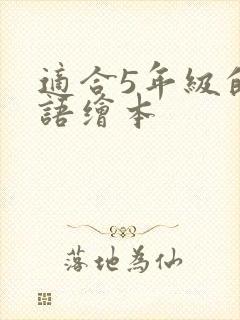 適合5年級
語繪本
落地為仙